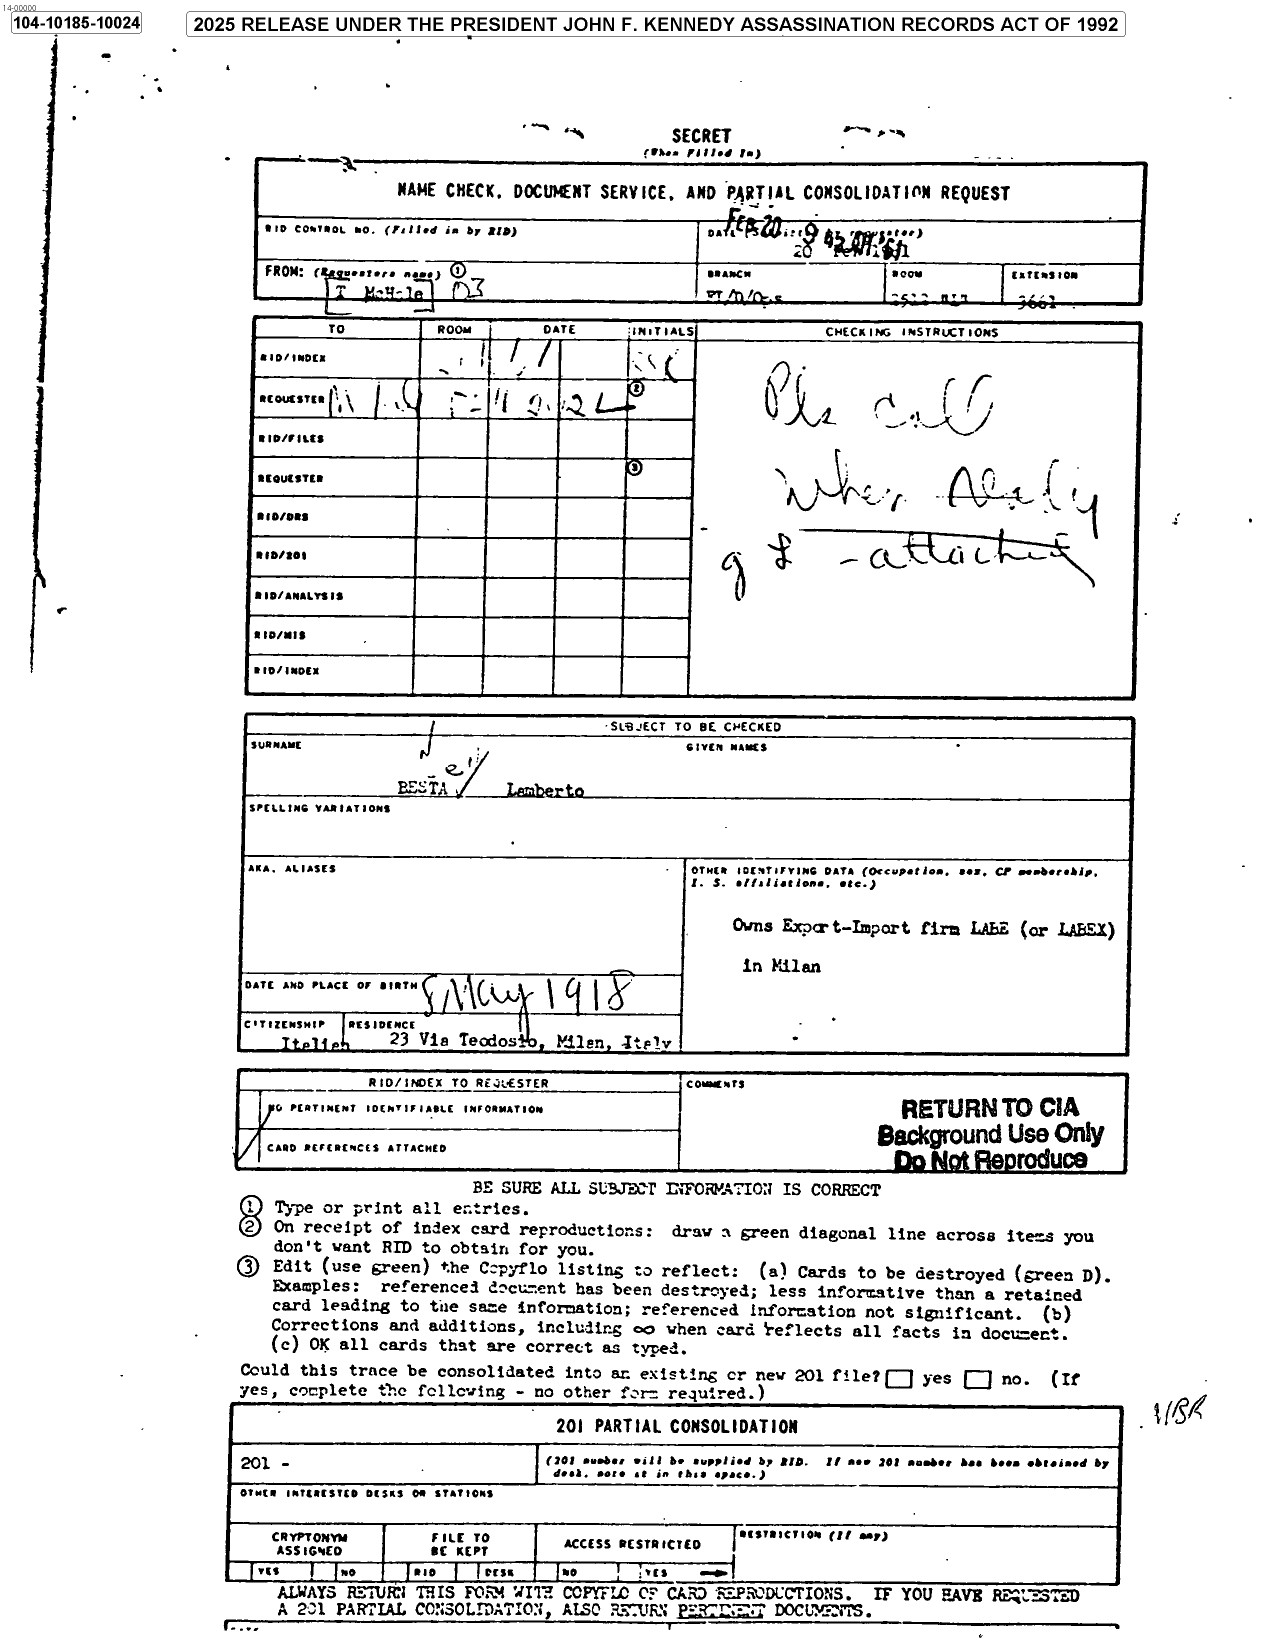 14-00000
104-10185-10024
2025 RELEASE UNDER THE PRESIDENT JOHN F. KENNEDY ASSASSINATION RECORDS ACT OF 1992
SECRET
(When Filled In)
NAME CHECK, DOCUMENT SERVICE, AND PARTIAL CONSOLIDATION REQUEST
RID CONTROL NO. (Filled in by RID)
DATE
FEB 20
20
FROM: (Requesters name) ①
D3
BRANCH
ROOM
EXTENSION
3661
TO ROOM DATE INITIALS CHECKING INSTRUCTIONS
RID/INDEX
REQUESTER ②
RID/FILES
REQUESTER ③
RID/DRS
RID/201
RID/ANALYSIS
RID/MIS
RID/INDEX
Pls call
when ready
- attached
SUBJECT TO BE CHECKED
SURNAME GIVEN NAMES
BESTA Lamberto
SPELLING VARIATIONS
AKA, ALIASES
OTHER IDENTIFYING DATA (Occupation, sex, CP membership,
I. S. affiliations, etc.)
Owns Export-Import firm LABE (or LABEX)
in Milan
DATE AND PLACE OF BIRTH 8 May 1918
CITIZENSHIP RESIDENCE
Italian 23 Via Teodosio, Milan, Italy
RID/INDEX TO REQUESTER COMMENTS
NO PERTINENT IDENTIFIABLE INFORMATION
CARD REFERENCES ATTACHED
RETURN TO CIA
Background Use Only
Do Not Reproduce
BE SURE ALL SUBJECT INFORMATION IS CORRECT
① Type or print all entries.
② On receipt of index card reproductions: draw a green diagonal line across items you
don't want RID to obtain for you.
③ Edit (use green) the Copyflo listing to reflect: (a) Cards to be destroyed (green D).
Examples: referenced document has been destroyed; less informative than a retained
card leading to the same information; referenced information not significant. (b)
Corrections and additions, including ∞ when card reflects all facts in document.
(c) OK all cards that are correct as typed.
Could this trace be consolidated into an existing or new 201 file? yes no. (If
yes, complete the following - no other form required.)
201 PARTIAL CONSOLIDATION
201 -
(201 number will be supplied by RID. If new 201 number has been obtained by
desk, note it in this space.)
OTHER INTERESTED DESKS OR STATIONS
CRYPTONYM
ASSIGNED
FILE TO
BE KEPT
ACCESS RESTRICTED
RESTRICTION (If any)
YES NO RID DESK NO YES
ALWAYS RETURN THIS FORM WITH COPYFLO OF CARD REPRODUCTIONS. IF YOU HAVE REQUESTED
A 201 PARTIAL CONSOLIDATION, ALSO RETURN PERTINENT DOCUMENTS.